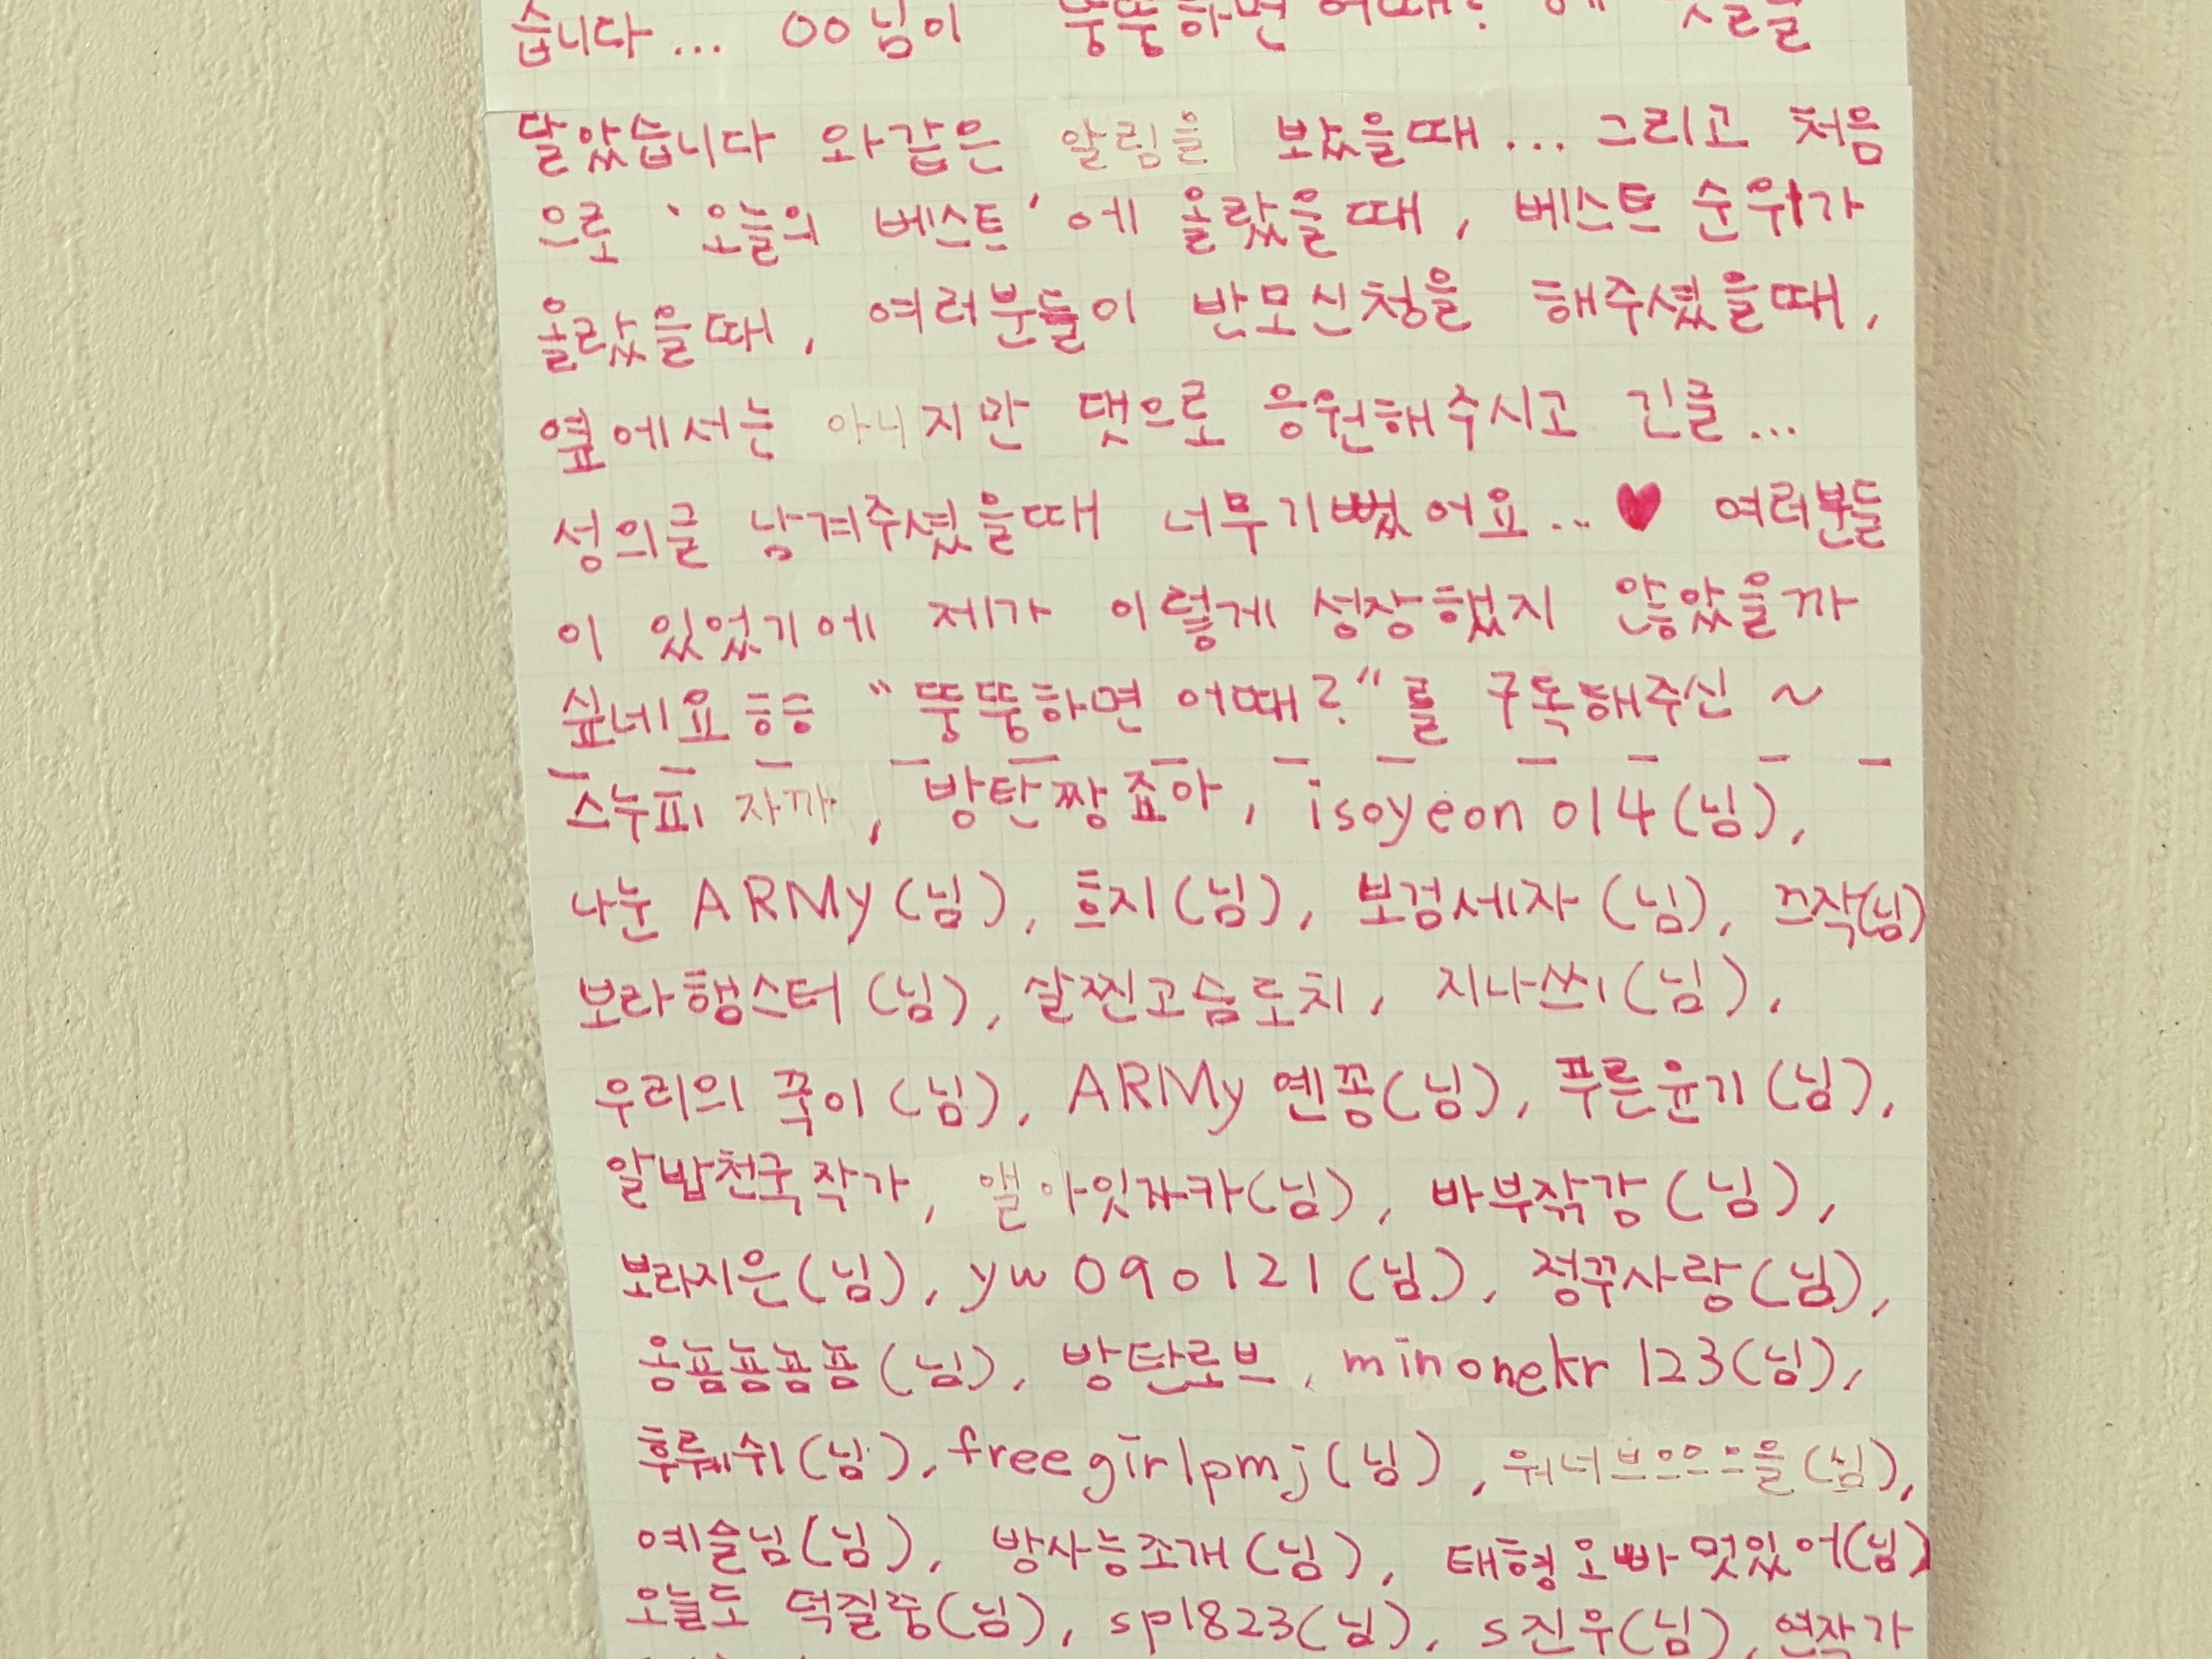 습니다... OO님이 뚱뚱하면 어때? 에 댓글을
달았습니다 와같은 알림을 봤을때... 그리고 처음
으로 '오늘의 베스트'에 올랐을때, 베스트 순위가
올랐을때, 여러분들이 반모신청을 해주셨을때,
옆에서는 아니지만 댓으로 응원해주시고 긴글...
성의글 남겨주셨을때 너무기뻤어요... ♥ 여러분들
이 있었기에 제가 이렇게 성장했지 않았을까
싶네요 흐흐 "뚱뚱하면 어때?"를 구독해주신 ~
스누피 자까, 방탄짱죠아, isoyeon014(님),
나눈 ARMy(님), 흐지(님), 보검세자(님), 끄작(님)
보라행스터(님), 살찐고슴도치, 지나쓰(님),
우리의 꾹이(님), ARMy 옌꽁(님), 푸른윤기(님),
알밥천국작가, 앨아잇자카(님), 바부작강(님),
보라지은(님), yw090121(님), 정꾸사랑(님),
옹뇸뇸뇸뇸(님), 방탄로브, minonekr123(님),
후뤠쉬(님), freegirlpmj(님), 워너브으으으을(님),
예슬님(님), 방사능조개(님), 태형오빠멋있어(님)
오늘도 덕질중(님), sp1823(님), s진우(님), 연작가